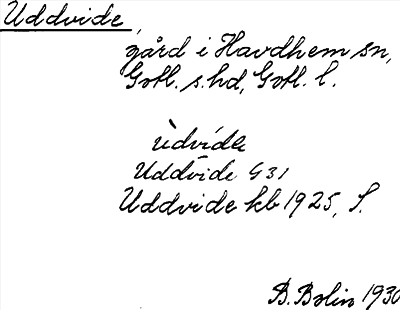 Uddvide,
gård i Havdhem sn,
Gotl. s. hd, Gotl. l.
ùdvíde
Uddvide G31
Uddvide kb 1925, S.
B. Bolin 1930